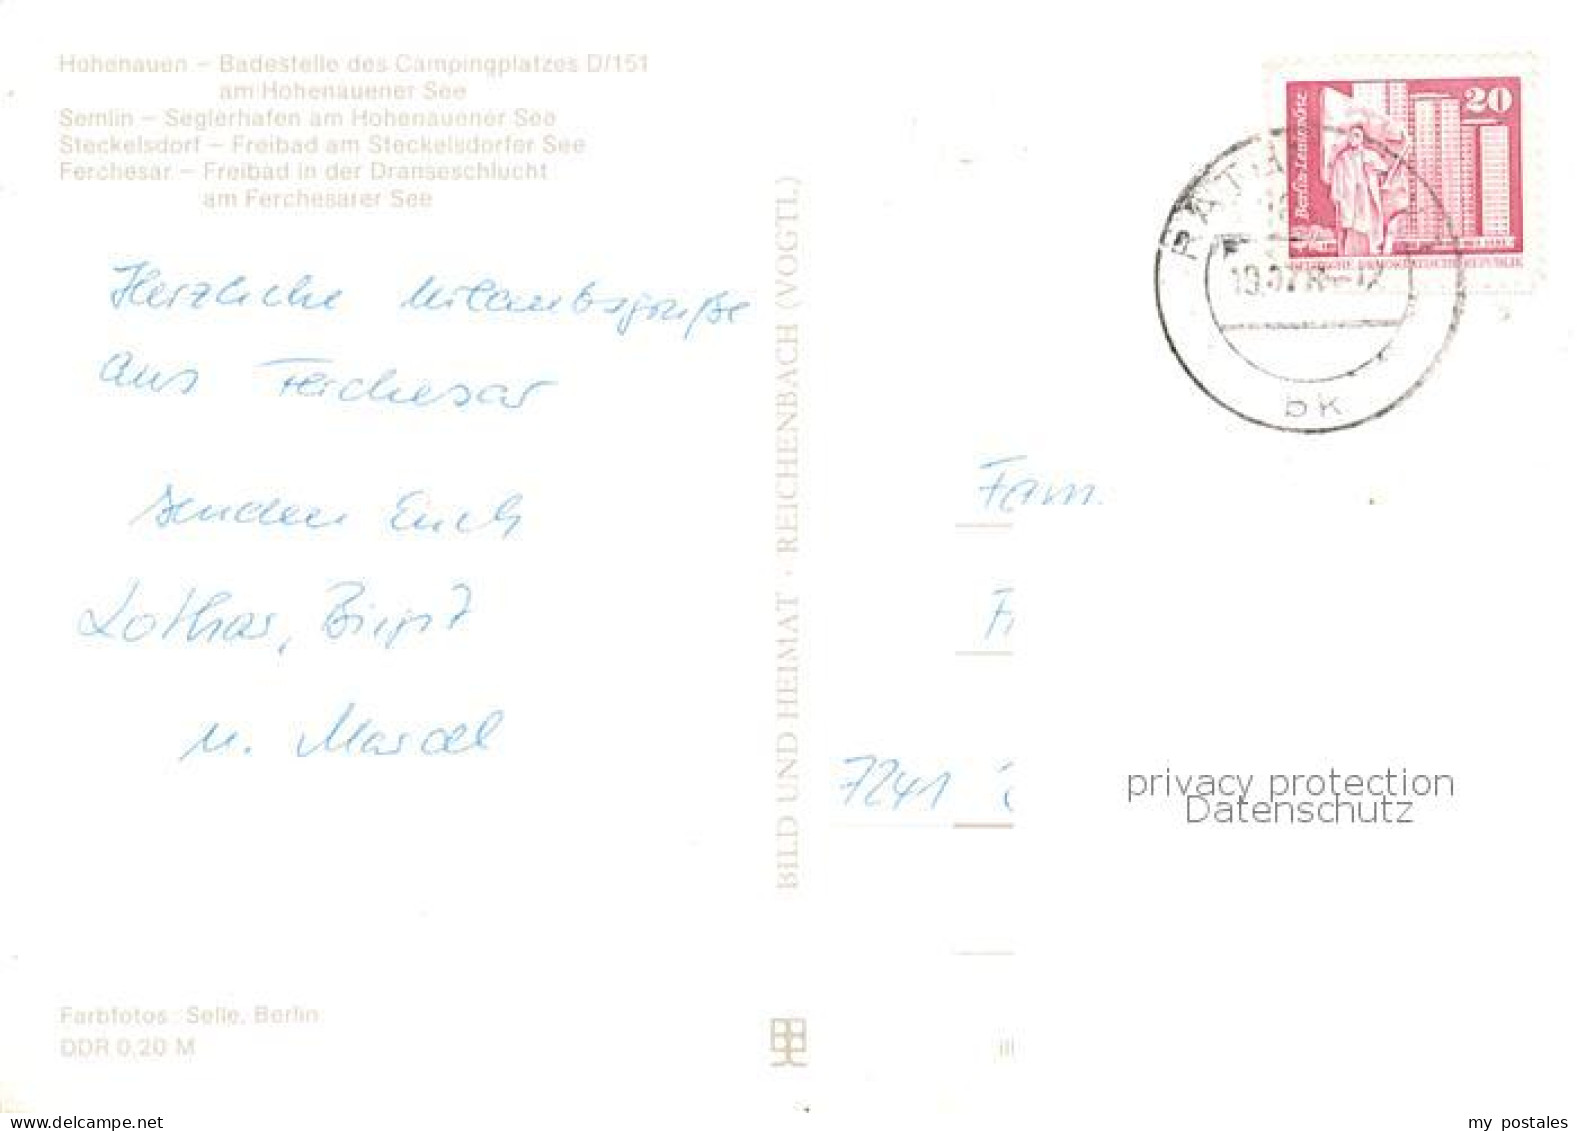 Hohenauen – Badestelle des Campingplatzes D/151
am Hohenauener See
Semlin – Seglerhafen am Hohenauener See
Steckelsdorf – Freibad am Steckelsdorfer See
Ferchesar – Freibad in der Dranseschlucht
am Ferchesarer See
Herzliche Urlaubsgrüße
aus Ferchesar
senden Euch
Lothar, Birgit
u. Marcel
Farbfotos: Selle, Berlin
DDR 0,20 M
BILD UND HEIMAT · REICHENBACH (VOGTL)
20
Berlin-Leninplatz
DEUTSCHE DEMOKRATISCHE REPUBLIK
bk
Fam.
7241
privacy protection
Datenschutz
my postales
www.delcampe.net